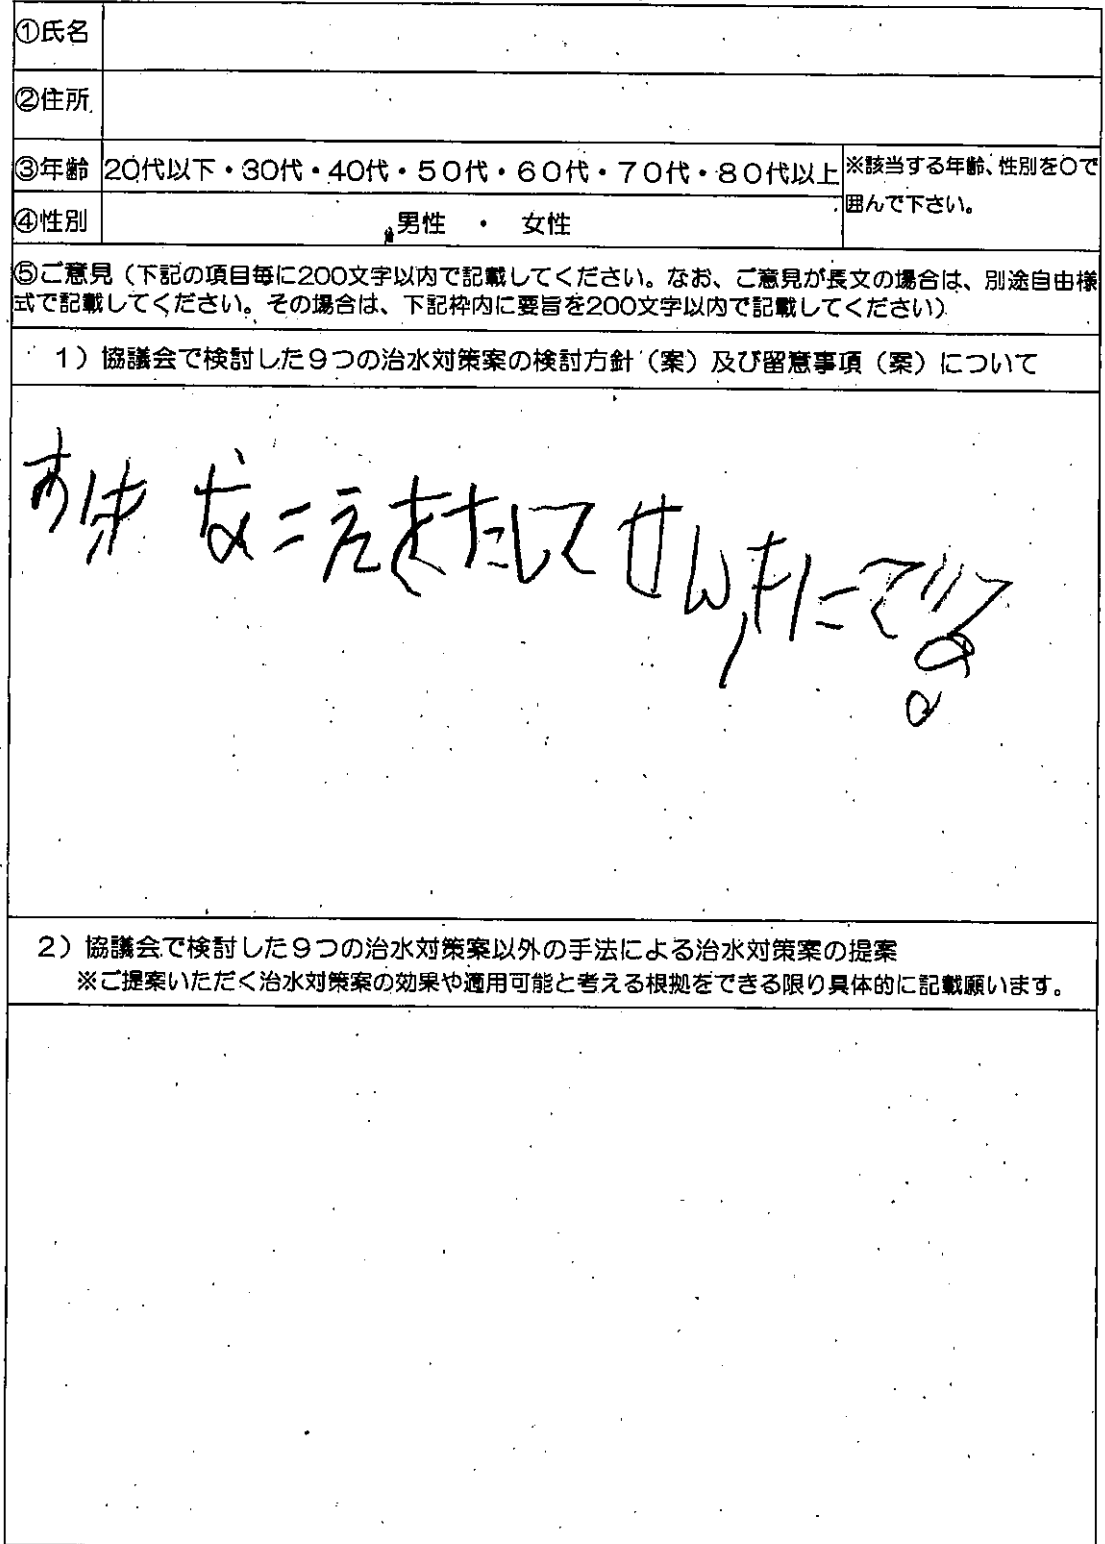 ①氏名
②住所
③年齢 20代以下・30代・40代・50代・60代・70代・80代以上 ※該当する年齢、性別を○で
囲んで下さい。
④性別 男性 ・ 女性
⑤ご意見（下記の項目毎に200文字以内で記載してください。なお、ご意見が長文の場合は、別途自由様
式で記載してください。その場合は、下記枠内に要旨を200文字以内で記載してください）
1）協議会で検討した９つの治水対策案の検討方針（案）及び留意事項（案）について
2）協議会で検討した９つの治水対策案以外の手法による治水対策案の提案
※ご提案いただく治水対策案の効果や適用可能と考える根拠をできる限り具体的に記載願います。